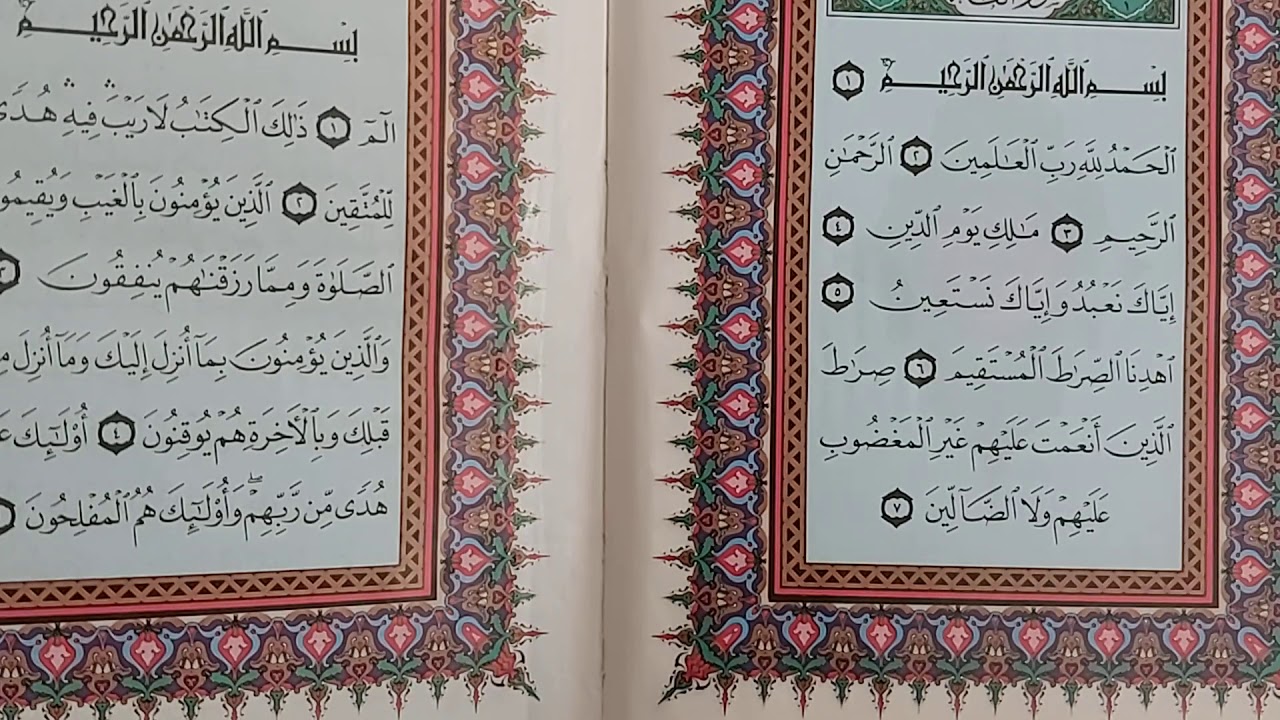 بِسْمِ ٱللَّهِ ٱلرَّحْمَٰنِ ٱلرَّحِيمِ ١
ٱلْحَمْدُ لِلَّهِ رَبِّ ٱلْعَٰلَمِينَ ٢ ٱلرَّحْمَٰنِ
ٱلرَّحِيمِ ٣ مَٰلِكِ يَوْمِ ٱلدِّينِ ٤
إِيَّاكَ نَعْبُدُ وَإِيَّاكَ نَسْتَعِينُ ٥
ٱهْدِنَا ٱلصِّرَٰطَ ٱلْمُسْتَقِيمَ ٦ صِرَٰطَ
ٱلَّذِينَ أَنْعَمْتَ عَلَيْهِمْ غَيْرِ ٱلْمَغْضُوبِ
عَلَيْهِمْ وَلَا ٱلضَّآلِّينَ ٧
بِسْمِ ٱللَّهِ ٱلرَّحْمَٰنِ ٱلرَّحِيمِ
الٓمٓ ١ ذَٰلِكَ ٱلْكِتَٰبُ لَا رَيْبَۛ فِيهِۛ هُدًى
لِّلْمُتَّقِينَ ٢ ٱلَّذِينَ يُؤْمِنُونَ بِٱلْغَيْبِ وَيُقِيمُو
ٱلصَّلَوٰةَ وَمِمَّا رَزَقْنَٰهُمْ يُنفِقُونَ ٣
وَٱلَّذِينَ يُؤْمِنُونَ بِمَآ أُنزِلَ إِلَيْكَ وَمَآ أُنزِلَ
قَبْلِكَ وَبِٱلْأَخِرَةِ هُمْ يُوقِنُونَ ٤ أُو۟لَٰٓئِكَ
هُدًى مِّن رَّبِّهِمْۖ وَأُو۟لَٰٓئِكَ هُمُ ٱلْمُفْلِحُونَ